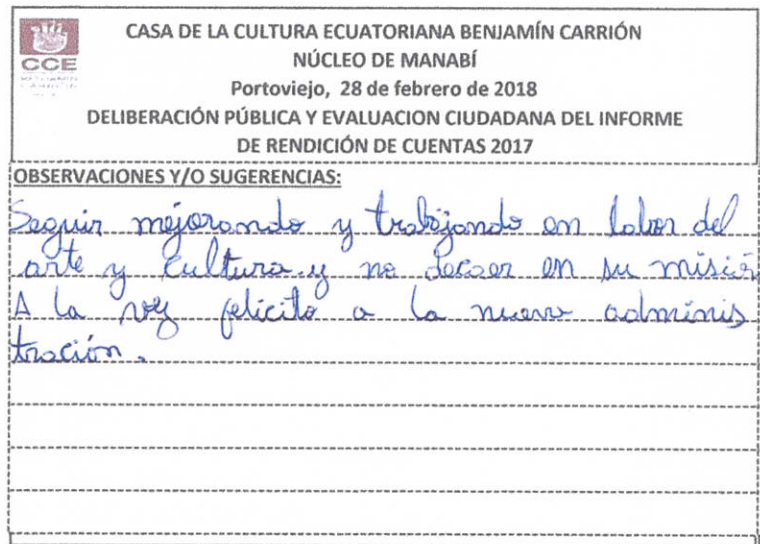 CASA DE LA CULTURA ECUATORIANA BENJAMÍN CARRIÓN
CCE
NÚCLEO DE MANABÍ
Portoviejo, 28 de febrero de 2018
DELIBERACIÓN PÚBLICA Y EVALUACION CIUDADANA DEL INFORME
DE RENDICIÓN DE CUENTAS 2017
OBSERVACIONES Y/O SUGERENCIAS:
Seguir mejorando y trabajando en labor del
arte y cultura y no decaer en su misión
A la vez felicito a la nueva adminis
tración.